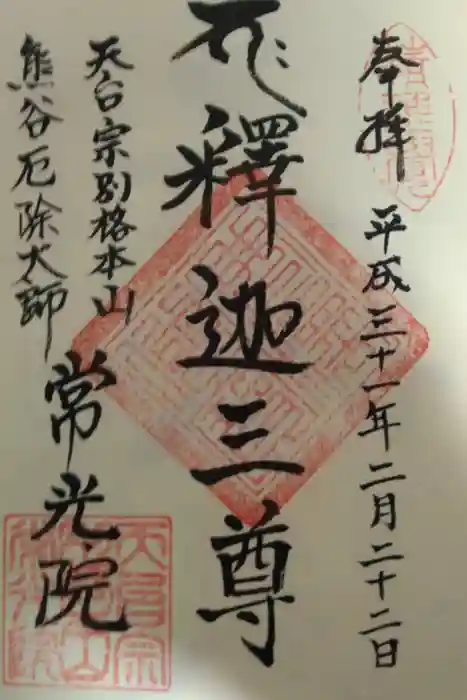 奉拝
平成三十一年二月二十二日
釋迦三尊
天台宗別格本山
熊谷厄除大師
常光院